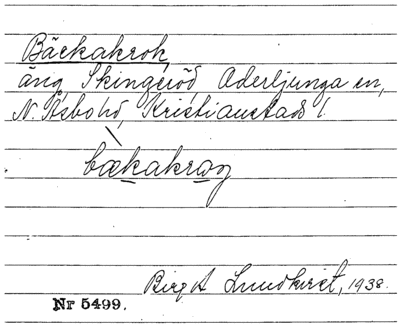 Bäckakrok,
äng, Skingeröd Oderljunga sn,
N. Åsbo hd, Kristianstads l.
bækakrag
Birgit Lundkvist, 1938.
Nr 5499.